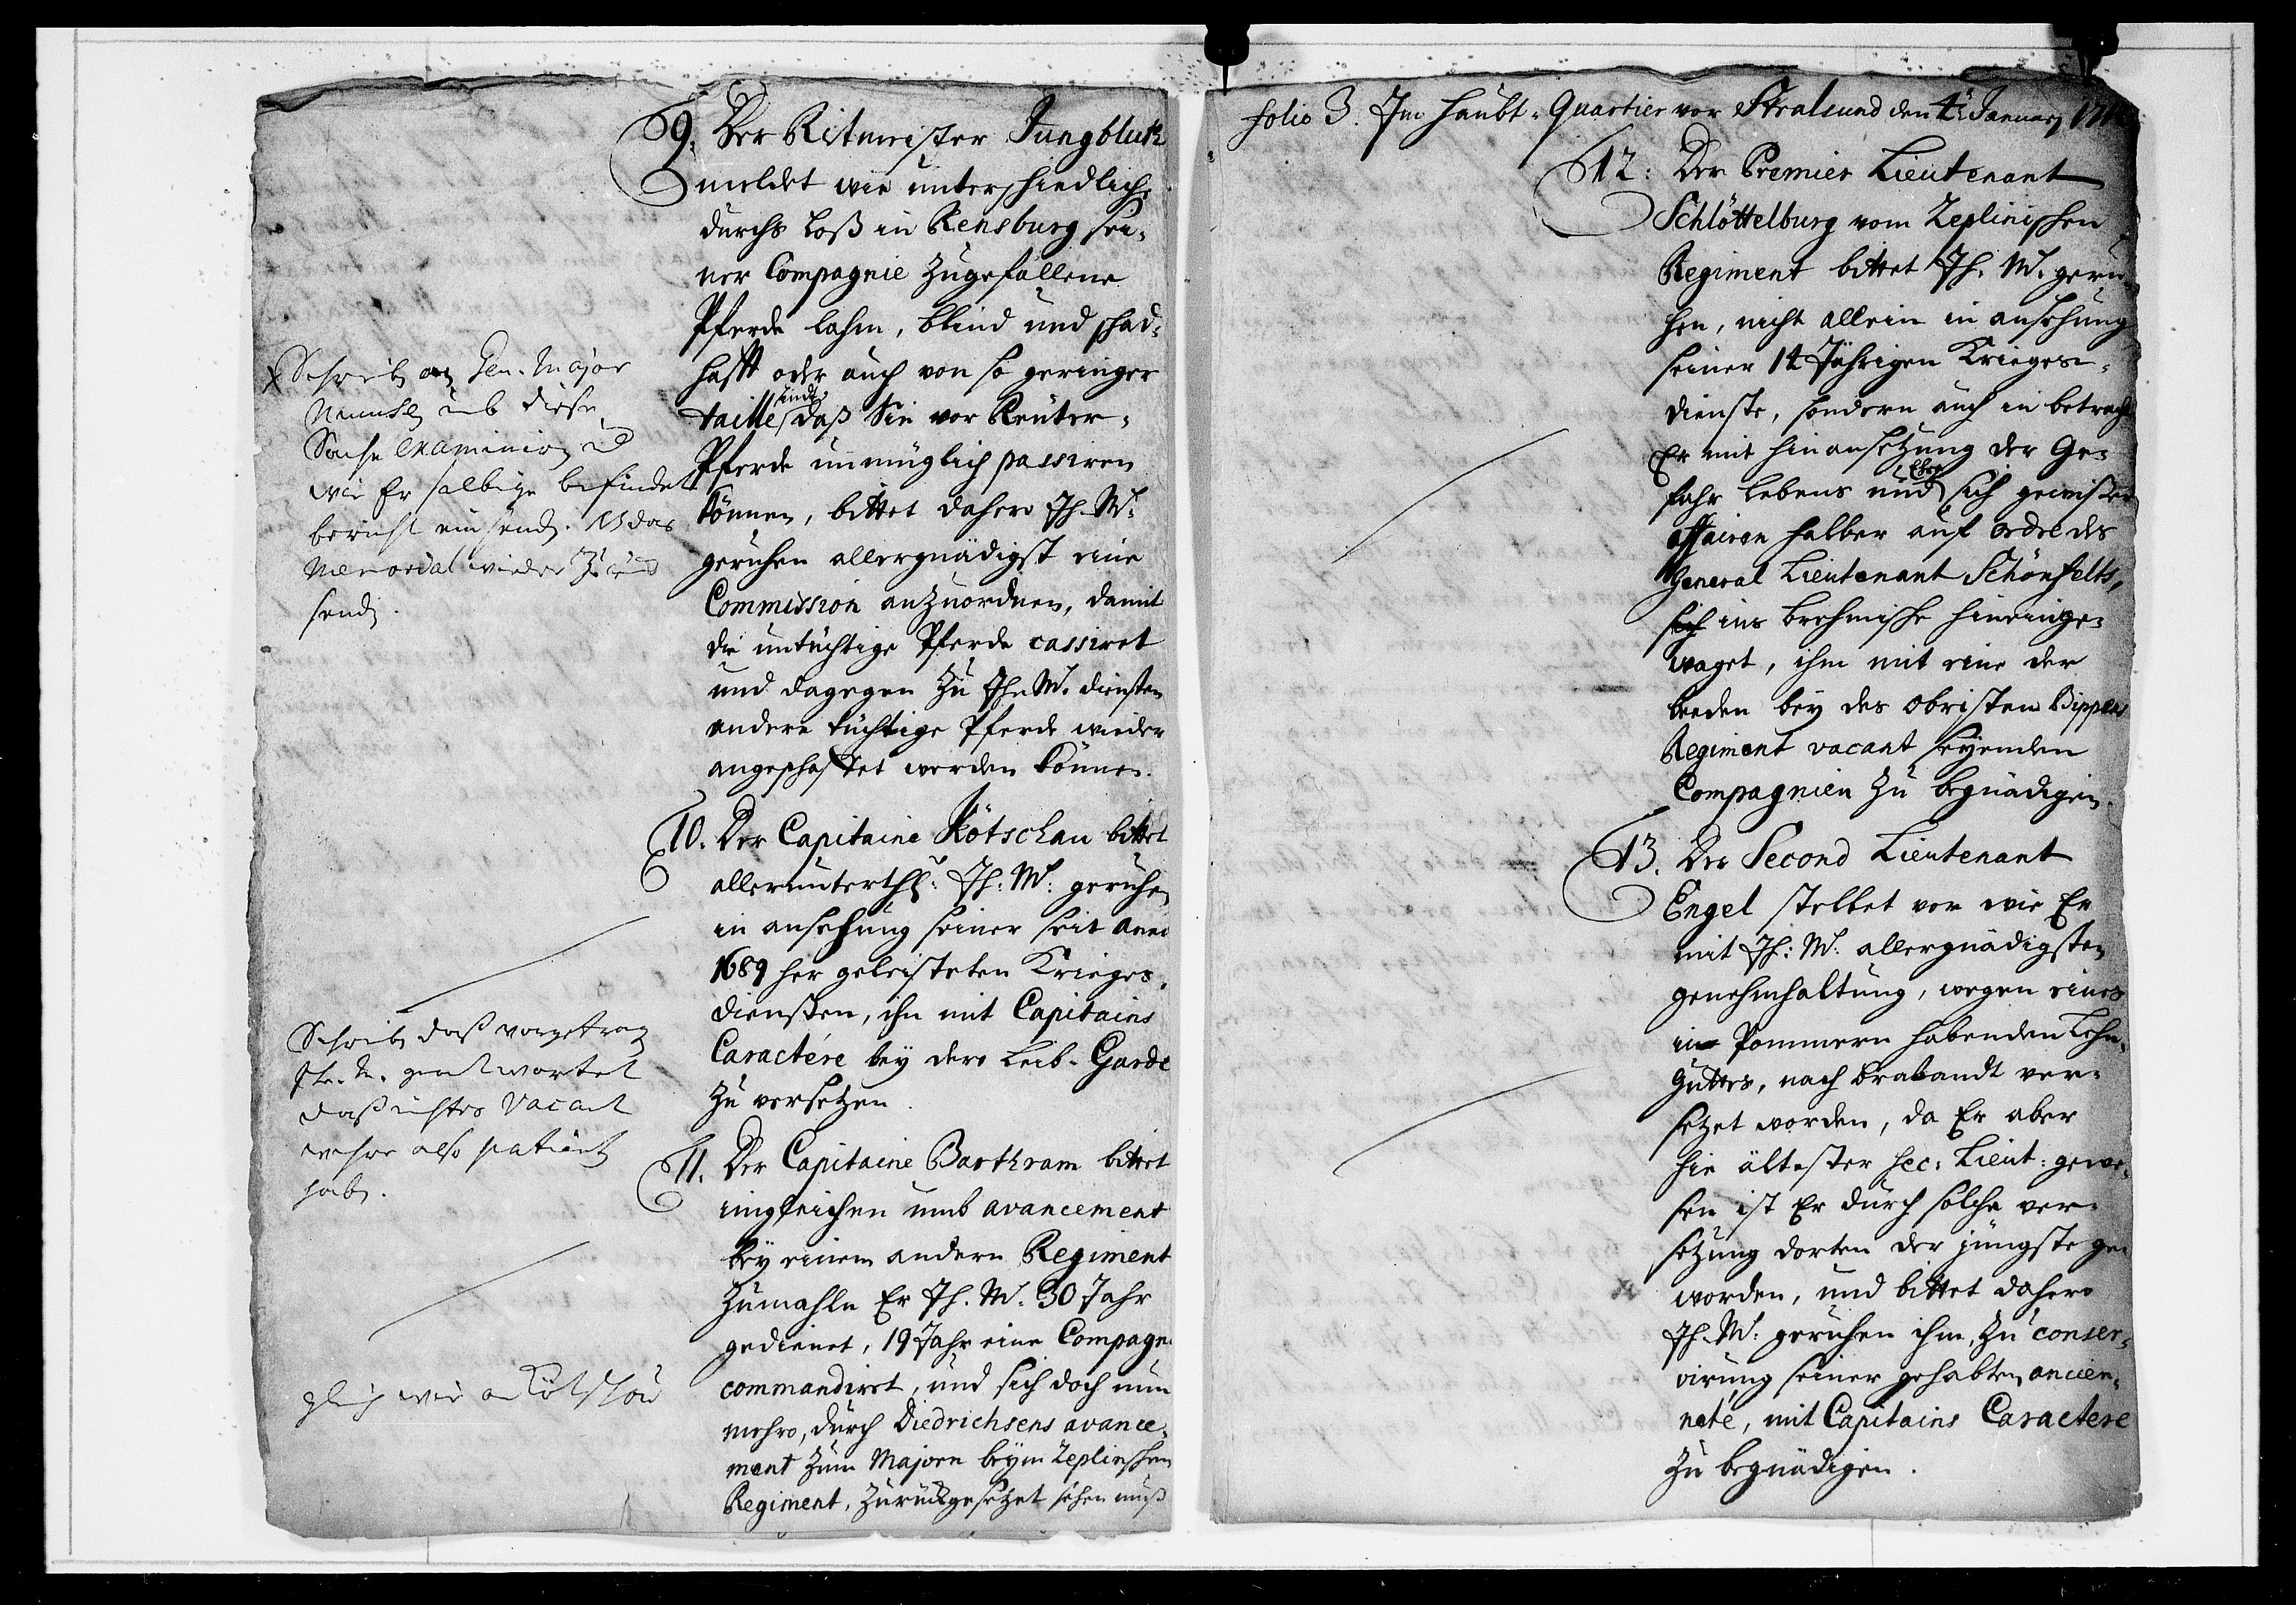 9. Der Ritmeister Jungbluth
meldet wie unterschiedliche
durchs loß in Rensburg sei-
ner Compagnie zugefallene
Pferde lahm, blind und schad-
hafft oder auch von so geringer
taille sindt, daß Sie vor Reuter-
Pferde unmüglich passiren
können, bittet dahero Ih. M.
geruhen allergnädigst eine
Commission anzuordnen, damit
die untüchtige Pferde cassiret
und dagegen zu Ih. M. diensten
andere tüchtige Pferde wieder
angeschaffet werden können.
Schreib an Gen. Major
umb diese
Sache examinir
wie Er selbige befindet
bericht einsend. NB das
Memorial wieder zurück
send.
10. Der Capitaine Kötschau bittet
allerunterth: Ih: M: geruhen
in ansehung seiner seit Anno
1689 her geleisteten Krieges-
diensten, ihn mit Capitains
Caractére bey dero Leib-Garde
zu versetzen.
Schreib daß vorgetrag
geantwortet
daß nichtes vacant
wehre also patientz
hab.
11. Der Capitaine Barthram bittet
ingleichen umb avancement
bey einem andern Regiment
zumahln Er Ih. M. 30 Jahr
gedienet, 19 Jahr eine Compagn
commandiret, und sich doch nun
mehro, durch Diedrichsens avance-
ment zum Majorn beym Zeplinschen
Regiment, zurückgesetzet sehen muß
glich wie an Kötschau
folio 3. Im Haubt-Quartier vor Stralsund den 4t Januarÿ 171
12: Der Premier Lieutenant
Schlöttelburg vom Zeplinischen
Regiment bittet Ih. M. geru-
hen, nicht allein in ansehung
seiner 14 Jährigen Krieges-
dienste, sondern auch in betracht
Er mit hinansetzung der Ge-
fahr lebens und Ehre sich gewisser
affairen halber auf ordre des
General Lieutenant Schönfelts,
sich ins brehmische hineinge-
waget, ihm mit eine der
beeden bey des Obristen Bippens
Regiment vacant seyenden
Compagnien zu begnädigen.
13. Der Second Lieutenant
Engel stellet vor wie Er
mit Ih: M: allergnädigsten
genehmhaltung, wegen eines
in Pommern habenden Lehn-
Guttes, nach Brabandt ver-
setzet worden, da Er aber
hie ältester Sec: Lieut: gewe-
sen ist Er durch solche ver-
setzung dorten der jüngste ge-
worden, und bittet dahero
Ih. M: geruhen ihm, zu conser-
virung seiner gehabten ancien-
neté, mit Capitains Caractere
zu begnädigen.